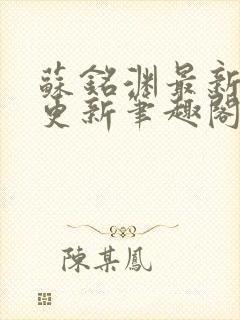 蘇銘淵最新
更新筆趣閣
陳某鳳